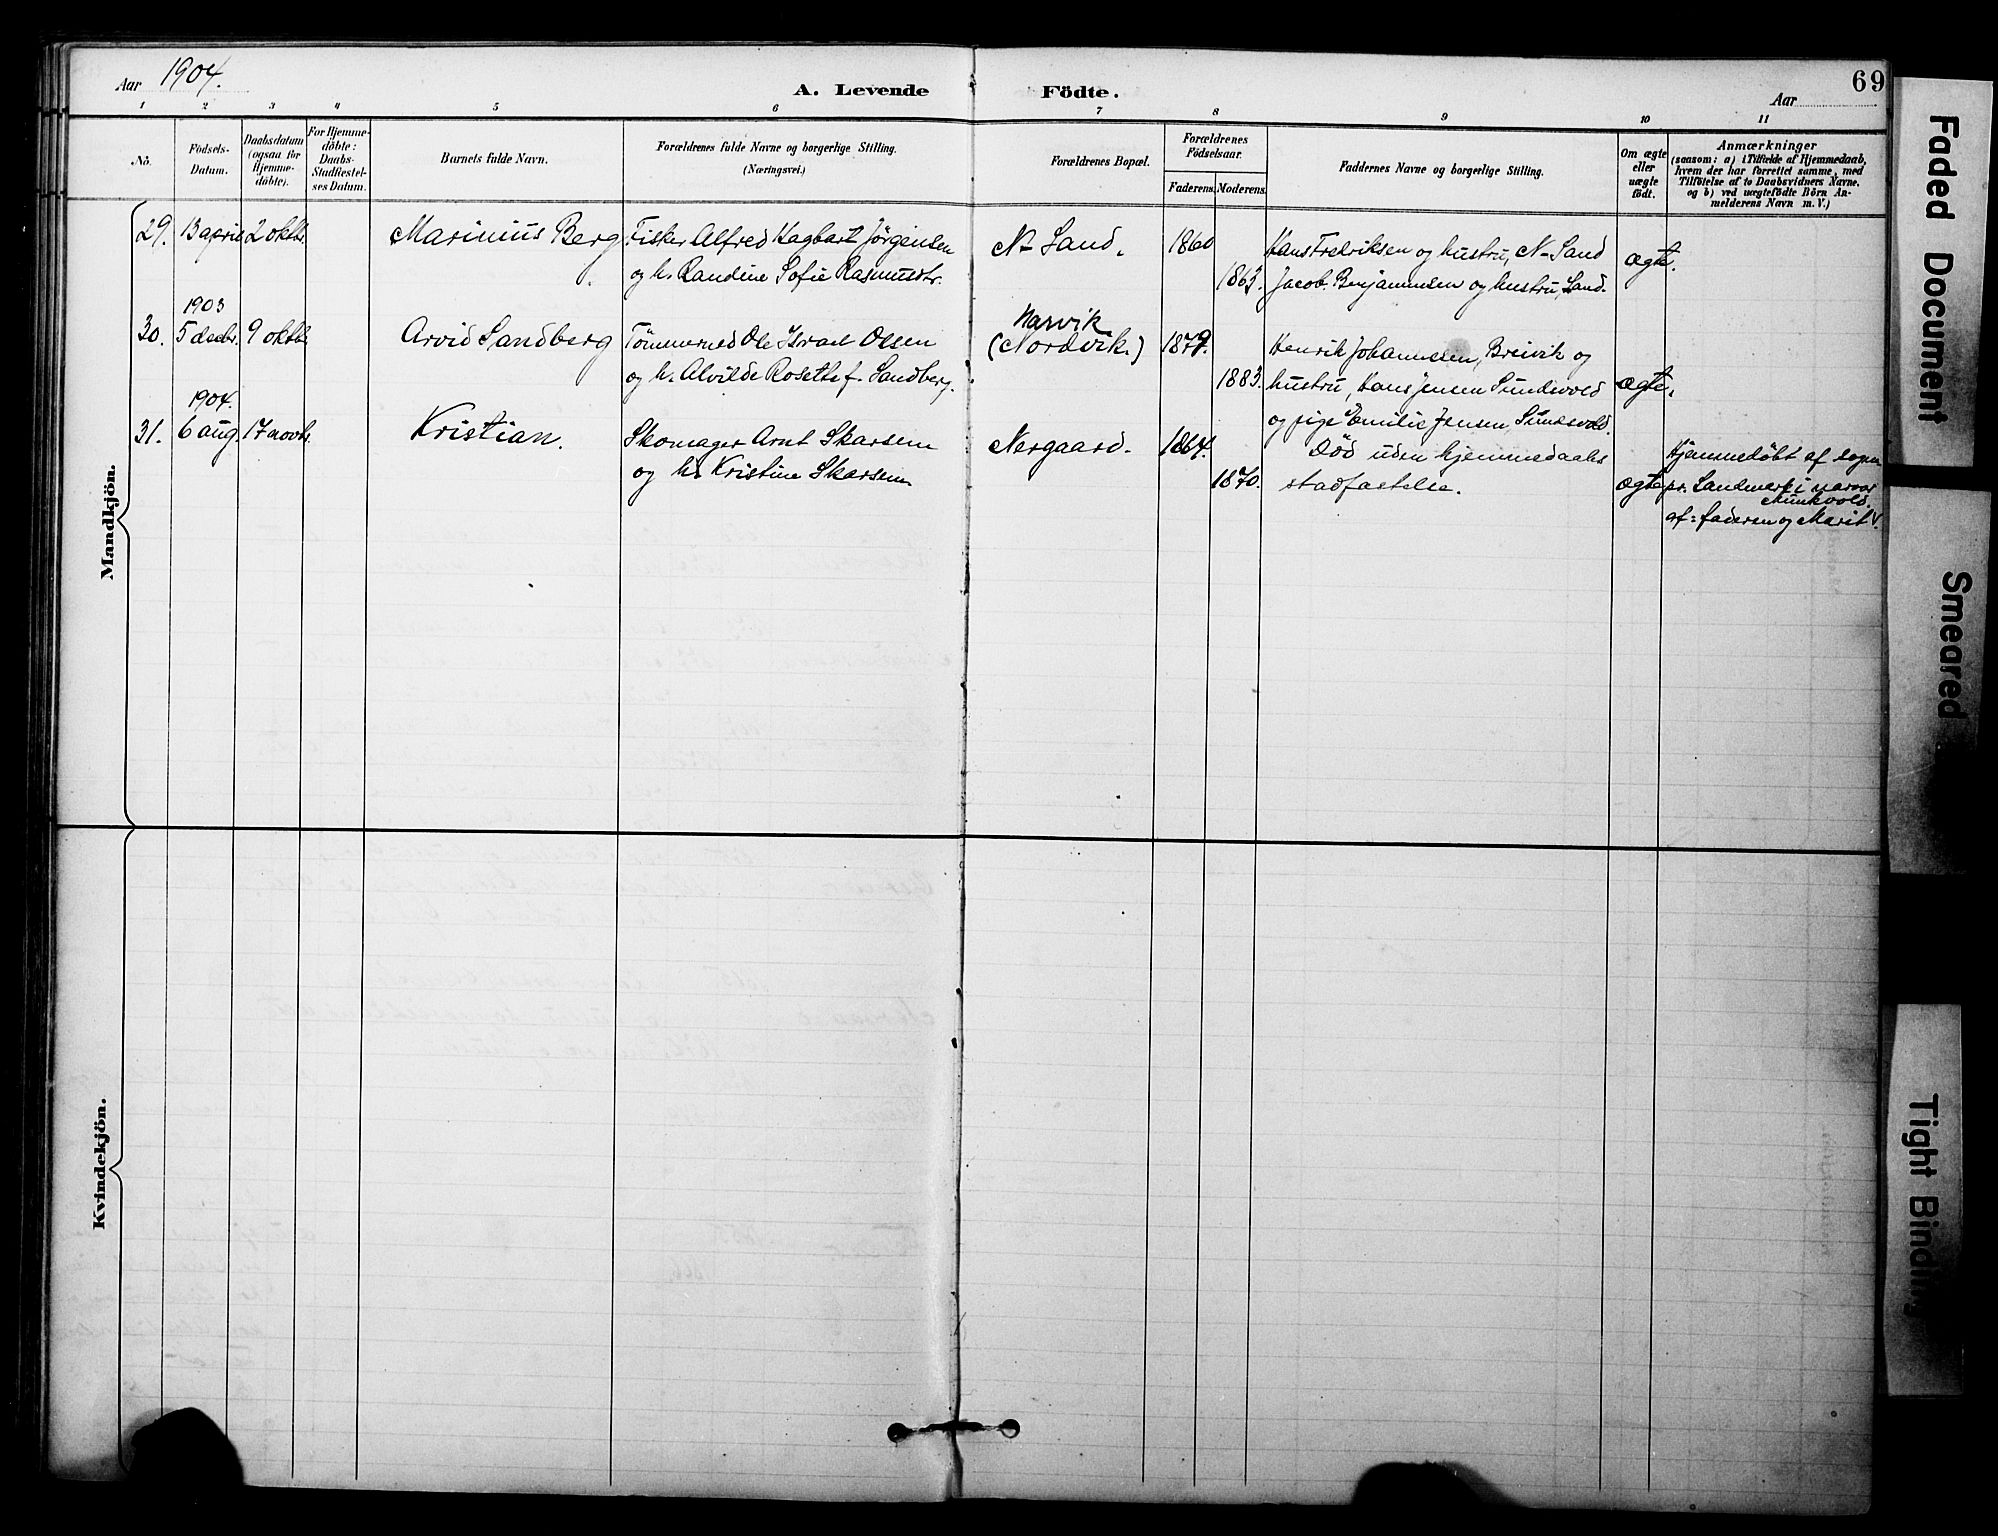 Aar 1904.
A. Levende Födte.
Aar
69
1 2 3 4 5 6 7 8 9 10 11
Nö.
Födsels-
Datum.
Daabsdatum
(ogsaa for
Hjemme-
döbte).
For Hjemme-
döbte:
Daabs-
Stadfæstel-
ses Datum.
Barnets fulde Navn.
Forældrenes fulde Navne og borgerlige Stilling.
(Næringsvei.)
Forældrenes Bopæl.
Forældrenes
Födselsaar.
Faderens. Moderens.
Faddernes Navne og borgerlige Stilling.
Om ægte
eller
uægte
födt.
Anmærkninger
(saasom: a) i Tilfælde af Hjemmedaab,
hvem der har forrettet samme, med
Tilföielse af to Daabsvidners Navne,
og b) ved uægtefödte Börn An-
melderens Navn m. V.)
Mandkjön.
29. 13 april 2 oktbr. Marinius Berg Fisker Alfred Hagbart Jörgensen N- Sand. 1860 Hans Fredriksen og hustru, N-Sand ægte.
og h. Randine Sofie Rasmusdtr. 1863. Jacob Benjaminsen og hustru, Sand.
1903
30. 5 decbr. 9 oktbr. Arvid Sandberg Tömmermd Ole Israel Olsen Narvik (Nordvik.) 1879. Henrik Johannessen, Breivik og
og h. Alvilde Rosette f. Sandberg. 1883. hustru, Hans Jensen Sundsvold ægte.
og pige Emilie Jensen Sundsvold.
1904.
31. 6 aug 17 novbr. Kristian. Skomager Arnt Skarsem Nergaard. 1864. Död uden hjemmedaabs
og h. Kristine Skarsem 1870. stadfæstelse. ægte
Hjemmedöbt af sogne
pr. Landmark i nærvær
af: faderen og Marit Munkvold.
Kvindekjön.
Faded Document
Smeared
Tight Binding